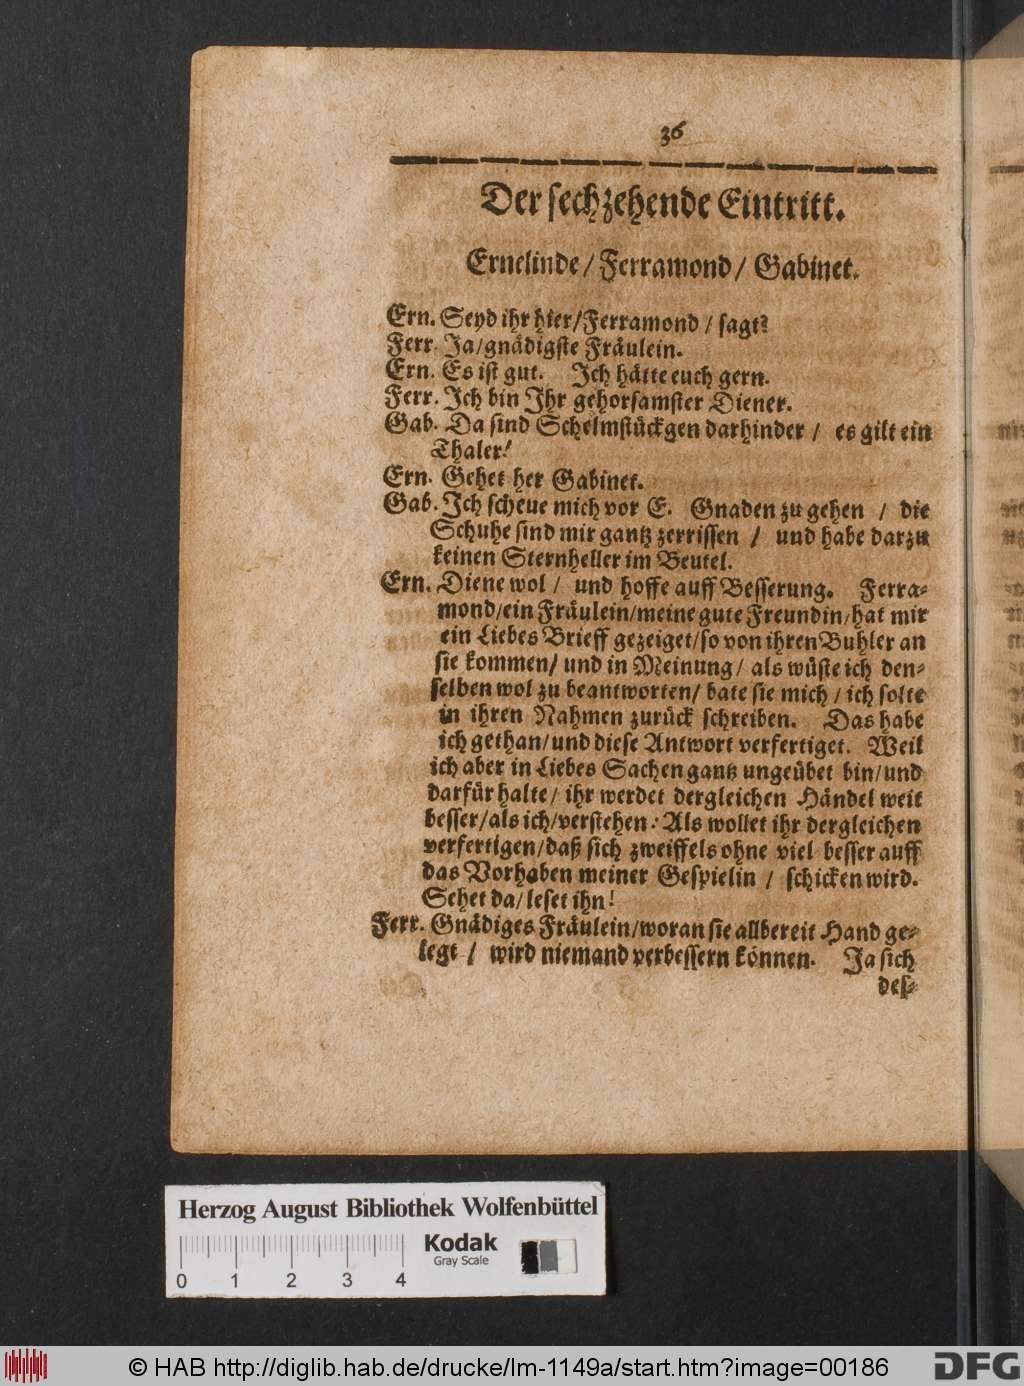 36
Der sechzehende Eintritt.
Ernelinde / Ferramond / Gabinet.
Ern. Seyd ihr hier / Ferramond / sagt?
Ferr. Ja / gnädigste Fräulein.
Ern. Es ist gut. Ich hätte euch gern.
Ferr. Ich bin Ihr gehorsamster Diener.
Gab. Da sind Schelmstückgen darhinder / es gilt ein
Thaler!
Ern. Gehet her Gabinet.
Gab. Ich scheue mich vor E. Gnaden zu gehen / die
Schuhe sind mir gantz zerrissen / und habe darzu
keinen Sternheller im Beutel.
Ern. Diene wol / und hoffe auff Besserung. Ferra-
mond / ein Fräulein / meine gute Freundin / hat mir
ein Liebes Brieff gezeiget / so von ihren Buhler an
sie kommen / und in Meinung / als wüste ich den-
selben wol zu beantworten / bate sie mich / ich solte
in ihren Nahmen zurück schreiben. Das habe
ich gethan / und diese Antwort verfertiget. Weil
ich aber in Liebes Sachen gantz ungeübet bin / und
darfür halte / ihr werdet dergleichen Händel weit
besser / als ich / verstehen: Als wollet ihr dergleichen
verfertigen / daß sich zweiffels ohne viel besser auff
das Vorhaben meiner Gespielin / schicken wird.
Sehet da / leset ihn!
Ferr. Gnädiges Fräulein / woran sie allbereit Hand ge-
legt / wird niemand verbessern können. Ja sich
des-
Herzog August Bibliothek Wolfenbüttel
Kodak
Gray Scale
0 1 2 3 4
© HAB http://diglib.hab.de/drucke/lm-1149a/start.htm?image=00186
DFG